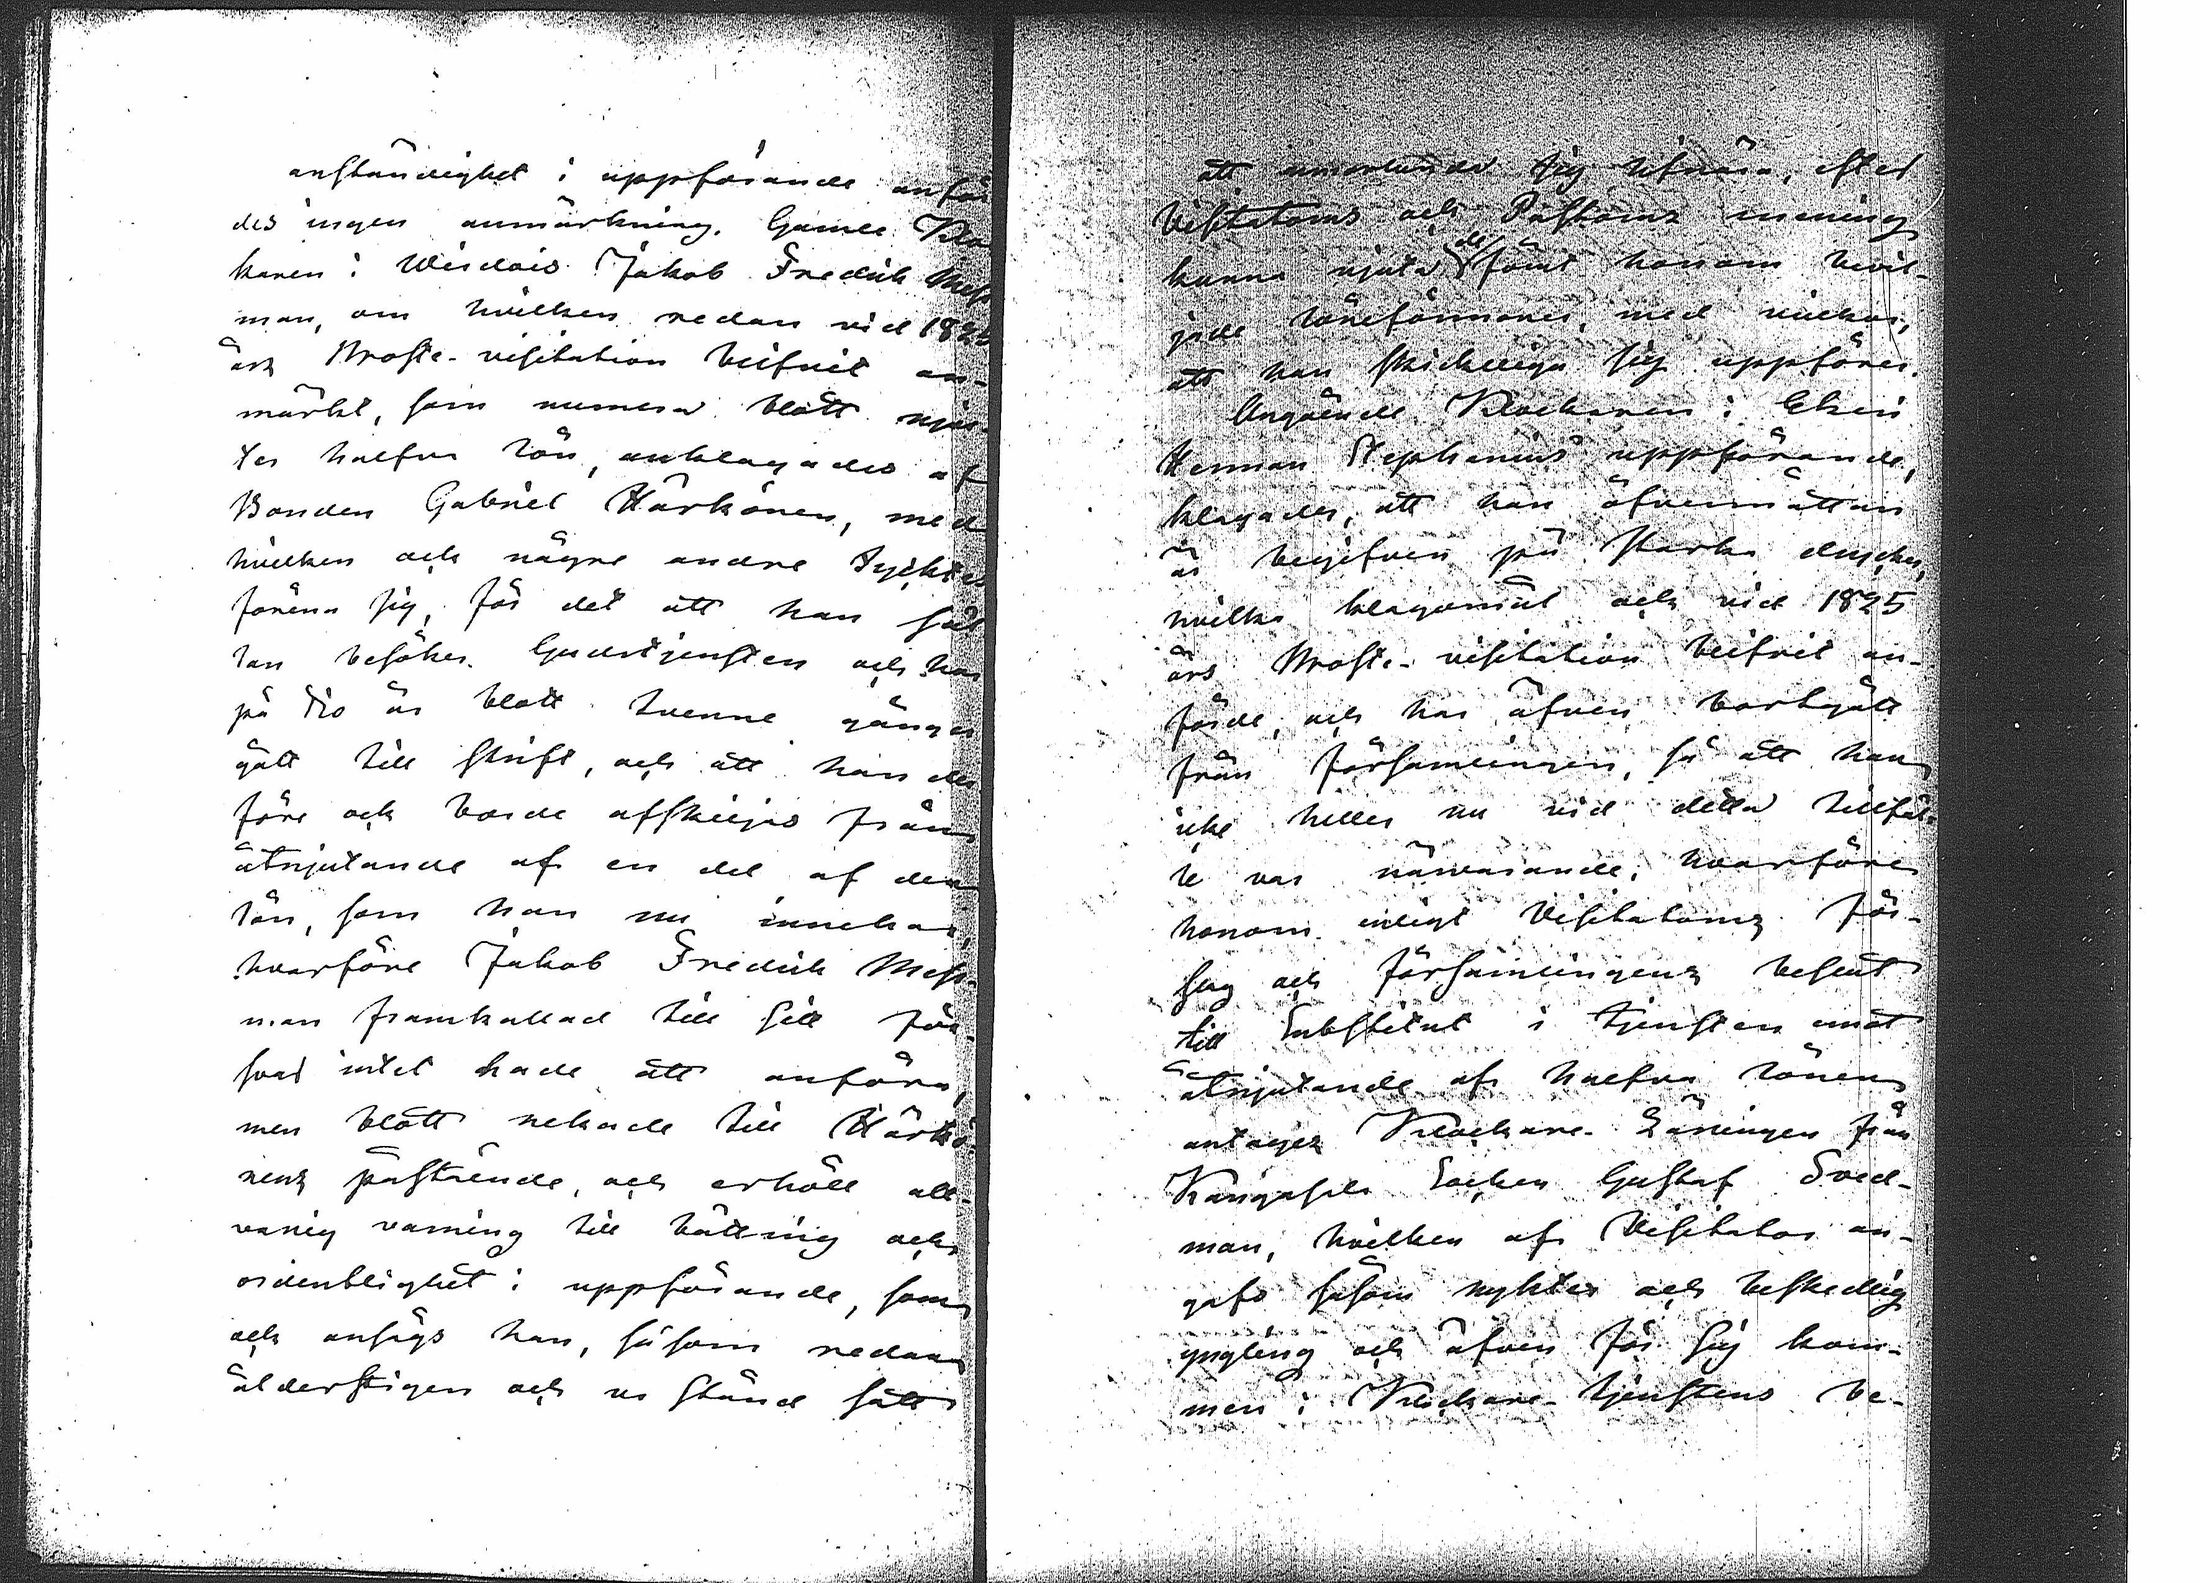 anständighet i uppförande anför
des ingen anmärkning. Gamle Kloc
karen i Wirdois Jakob Fredrik Mess
man, om hvilken redan vid 182
års Proste-visitation blifvit an-
märkt, som numera blott nju-
ter halfva lön, anklagades af
Bonden Gabriel Härkönen, med
hvilken och någre andre tycktes
förena sig, för det att han säl
lan besöker Gudstjensten och har
på tio år blott tvenne gånger
gått till skrift, och att han der
före ock borde afskiljas från
åtnjutande af en del af den
lön, som han nu innehar,
hvarföre Jakob Fredrik Mess-
man framkallad till sitt för-
svar intet hade att anföra,
men blott nekade till Härkö-
nens påstående, och erhöll all-
varlig varning till bättring och
ordentlighet i uppförande, som
ock ansågs han, såsom redan
ålderstigen och ur stånd satt
att annorlunda sig lifnära, efter
Visitators och Pastors mening
kunna njuta de förut honom bevil-
jade löneförmoner, med vilkor,
att han skickeliga sig uppförer.
Angående Klockaren i Ekeri
Herman Stephanius uppförande,
klagades, att han öfvermåttan
är begifven på starka drycker,
hvilka klagomål ock vid 1825
års Proste-visitation blifvit an-
förde, och har äfven bortgått
från församlingen, så att han
icke heller nu vid detta tillfäl-
le var närvarande; hvarföre
honom enligt Visitators för-
slag och församlingens beslut
till Substitut i tjensten emot
åtnjutande af halfva lönen
antages Klockare-Lärlingen från
Kangasala Socken Gustaf Sved-
man, hvilken af Visitator an-
gafs såsom nykter och beskedlig
yngling och äfven för sig kom-
men i Klockare-tjenstens be-